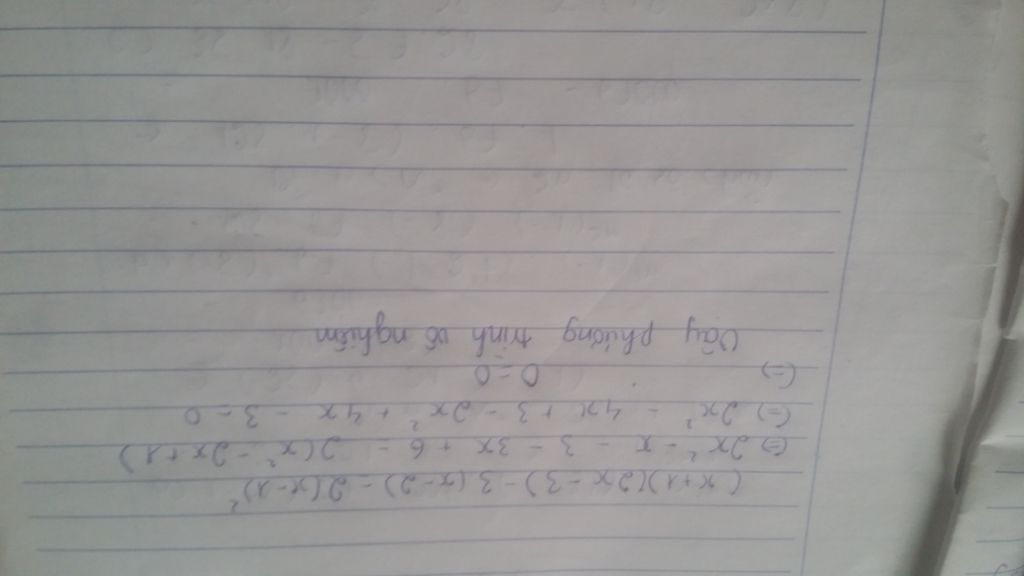 (x+1)(2x-3)-3(x-2)=2(x-1)²
(=) 2x² - x - 3 - 3x + 6 = 2(x² - 2x+1)
(=) 2x² - 4x + 3 - 2x² + 4x - 3 = 0
(=) 0 = 0
Vậy phương trình vô nghiệm